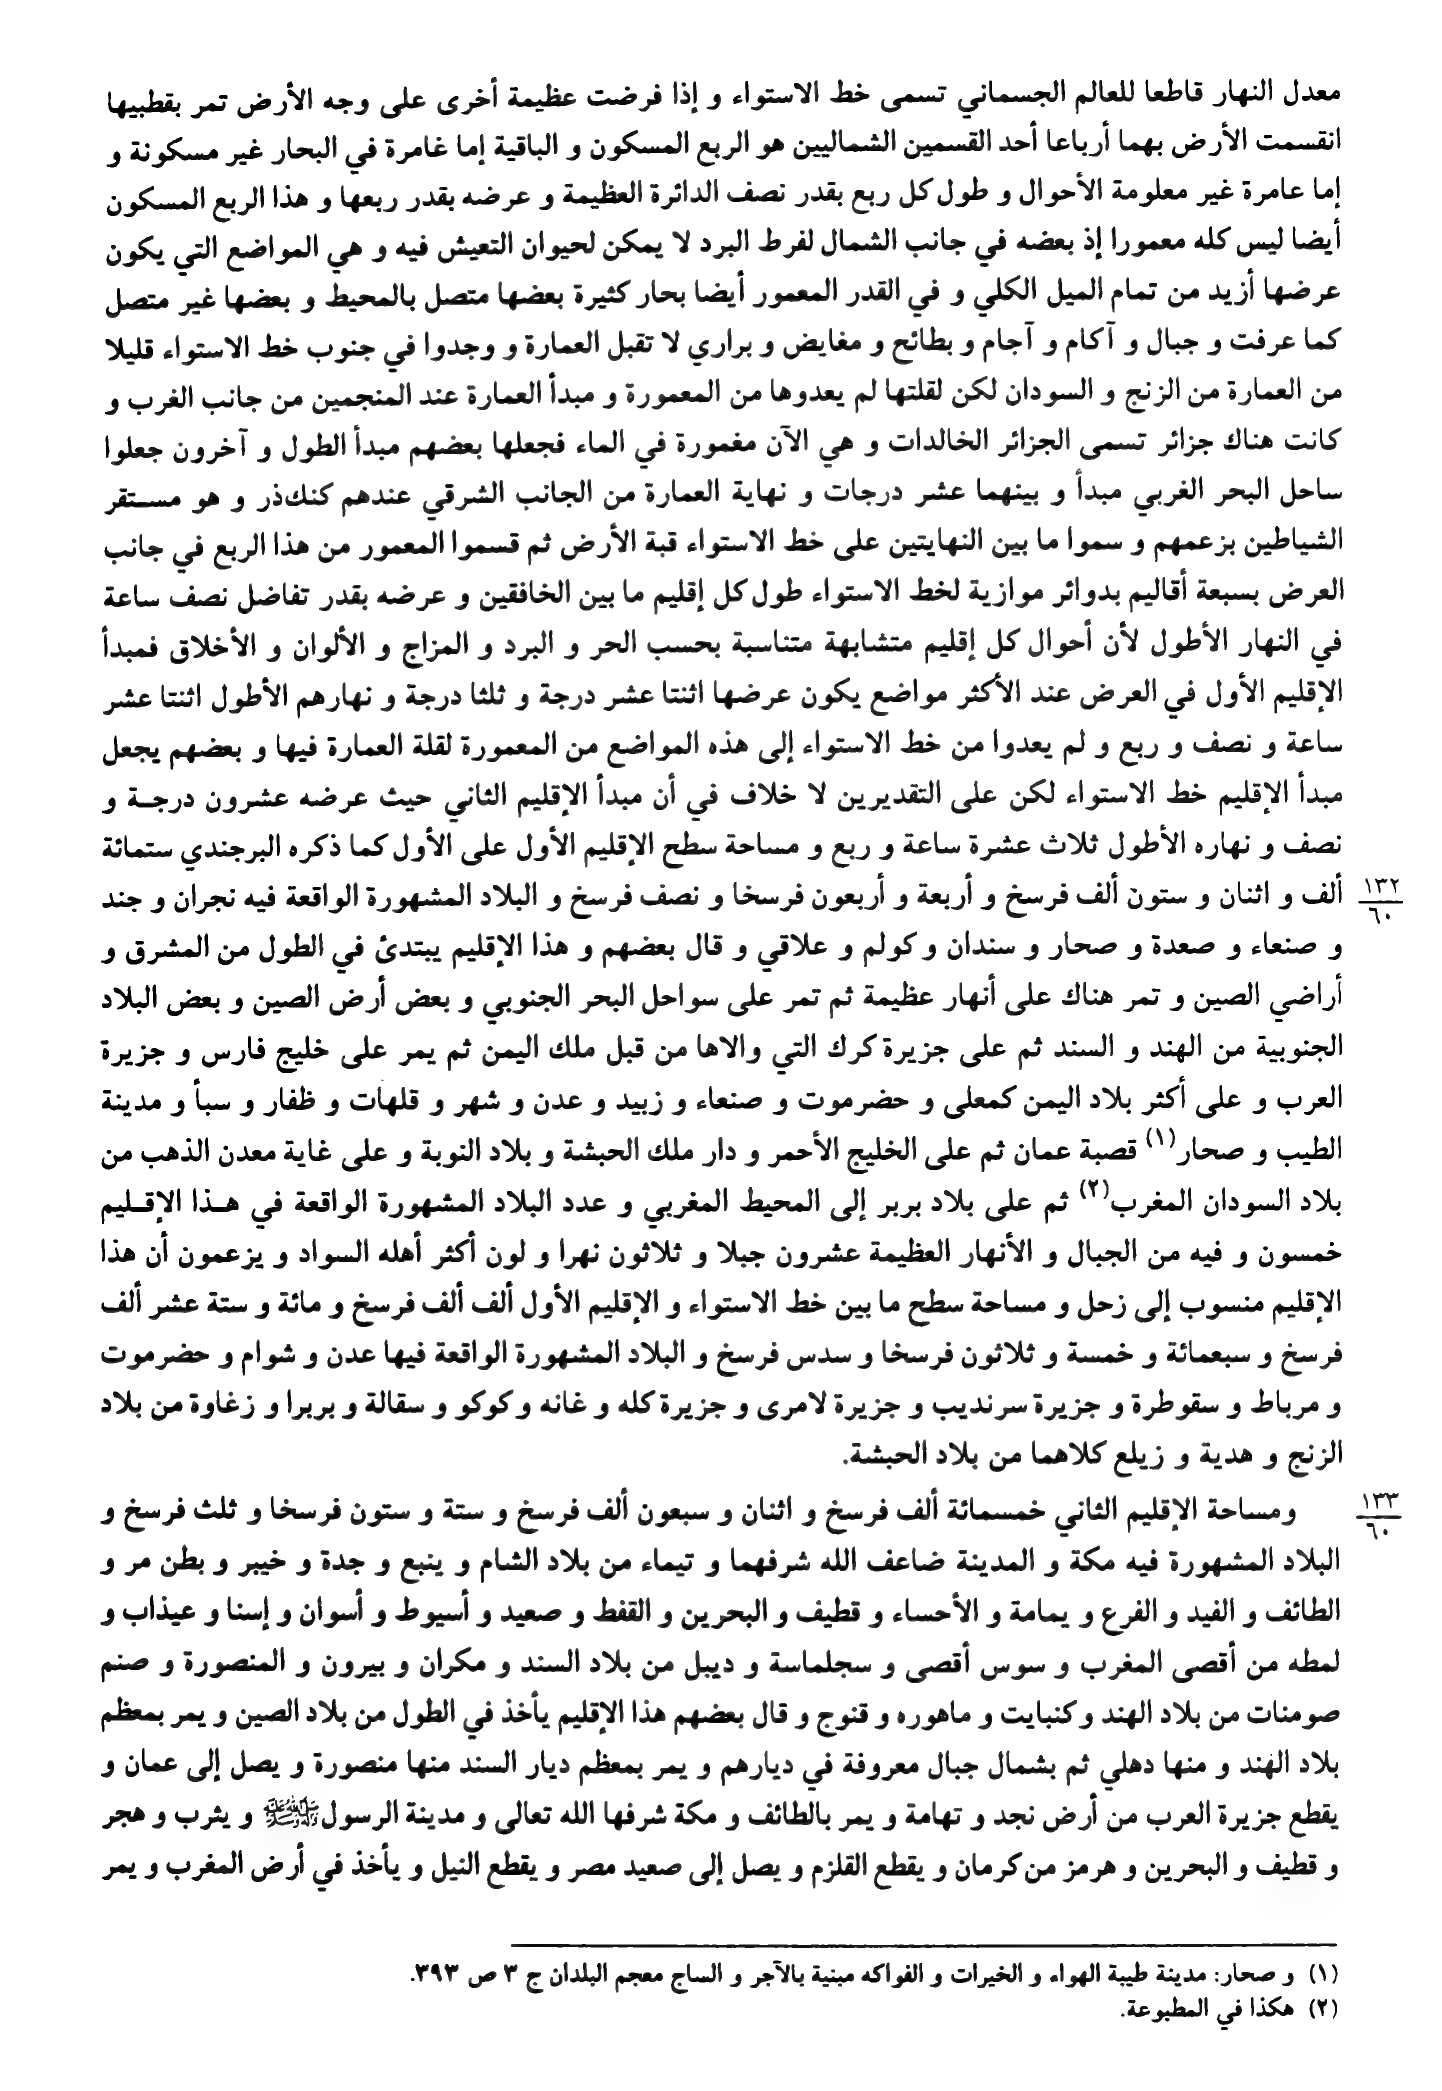 معدل النهار قاطعا للعالم الجسماني تسمى خط الاستواء و إذا فرضت عظيمة أخرى على وجه الأرض تمر بقطبيها
انقسمت الأرض بهما أرباعا أحد القسمين الشماليين هو الربع المسكون و الباقية إما غامرة في البحار غير مسكونة و
إما عامرة غير معلومة الأحوال و طول كل ربع بقدر نصف الدائرة العظيمة و عرضه بقدر ربعها و هذا الربع المسكون
أيضا ليس كله معمورا إذ بعضه في جانب الشمال لفرط البرد لا يمكن لحيوان التعيش فيه و هي المواضع التي يكون
عرضها أزيد من تمام الميل الكلي و في القدر المعمور أيضا بحار كثيرة بعضها متصل بالمحيط و بعضها غير متصل
كما عرفت و جبال و آكام و آجام و بطائح و مغايض و براري لا تقبل العمارة و وجدوا في جنوب خط الاستواء قليلا
من العمارة من الزنج و السودان لكن لقلتها لم يعدوها من المعمورة و مبدأ العمارة عند المنجمين من جانب الغرب و
كانت هناك جزائر تسمى الجزائر الخالدات و هي الآن مغمورة في الماء فجعلها بعضهم مبدأ الطول و آخرون جعلوا
ساحل البحر الغربي مبدأ و بينهما عشر درجات و نهاية العمارة من الجانب الشرقي عندهم كنك‌ذر و هو مستقر
الشياطين بزعمهم و سموا ما بين النهايتين على خط الاستواء قبة الأرض ثم قسموا المعمور من هذا الربع في جانب
العرض بسبعة أقاليم بدوائر موازية لخط الاستواء طول كل إقليم ما بين الخافقين و عرضه بقدر تفاضل نصف ساعة
في النهار الأطول لأن أحوال كل إقليم متشابهة متناسبة بحسب الحر و البرد و المزاج و الألوان و الأخلاق فمبدأ
الإقليم الأول في العرض عند الأكثر مواضع يكون عرضها اثنتا عشر درجة و ثلثا درجة و نهارهم الأطول اثنتا عشر
ساعة و نصف و ربع و لم يعدوا من خط الاستواء إلى هذه المواضع من المعمورة لقلة العمارة فيها و بعضهم يجعل
مبدأ الإقليم خط الاستواء لكن على التقديرين لا خلاف في أن مبدأ الإقليم الثاني حيث عرضه عشرون درجة و
نصف و نهاره الأطول ثلاث عشرة ساعة و ربع و مساحة سطح الإقليم الأول على الأول كما ذكره البرجندي ستمائة
ألف و اثنان و ستون ألف فرسخ و أربعة و أربعون فرسخا و نصف فرسخ و البلاد المشهورة الواقعة فيه نجران و جند
١٣٢
٦٠
و صنعاء و صعدة و صحار و سندان و كولم و علاقي و قال بعضهم و هذا الإقليم يبتدئ في الطول من المشرق و
أراضي الصين و تمر هناك على أنهار عظيمة ثم تمر على سواحل البحر الجنوبي و بعض أرض الصين و بعض البلاد
الجنوبية من الهند و السند ثم على جزيرة كرك التي والاها من قبل ملك اليمن ثم يمر على خليج فارس و جزيرة
العرب و على أكثر بلاد اليمن كمعلى و حضرموت و صنعاء و زبيد و عدن و شهر و قلهات و ظفار و سبأ و مدينة
الطيب و صحار(١) قصبة عمان ثم على الخليج الأحمر و دار ملك الحبشة و بلاد النوبة و على غاية معدن الذهب من
بلاد السودان المغرب(٢) ثم على بلاد بربر إلى المحيط المغربي و عدد البلاد المشهورة الواقعة في هذا الإقليم
خمسون و فيه من الجبال و الأنهار العظيمة عشرون جبلا و ثلاثون نهرا و لون أكثر أهله السواد و يزعمون أن هذا
الإقليم منسوب إلى زحل و مساحة سطح ما بين خط الاستواء و الإقليم الأول ألف ألف فرسخ و مائة و ستة عشر ألف
فرسخ و سبعمائة و خمسة و ثلاثون فرسخا و سدس فرسخ و البلاد المشهورة الواقعة فيها عدن و شوام و حضرموت
و مرباط و سقوطرة و جزيرة سرنديب و جزيرة لامرى و جزيرة كله و غانه و كوكو و سقالة و بربرا و زغاوة من بلاد
الزنج و هدية و زيلع كلاهما من بلاد الحبشة.
ومساحة الإقليم الثاني خمسمائة ألف فرسخ و اثنان و سبعون ألف فرسخ و ستة و ستون فرسخا و ثلث فرسخ و
١٣٣
٦٠
البلاد المشهورة فيه مكة و المدينة ضاعف الله شرفهما و تيماء من بلاد الشام و ينبع و جدة و خيبر و بطن مر و
الطائف و الفيد و الفرع و يمامة و الأحساء و قطيف و البحرين و القفط و صعيد و أسيوط و أسوان و إسنا و عيذاب و
لمطه من أقصى المغرب و سوس أقصى و سجلماسة و ديبل من بلاد السند و مكران و بيرون و المنصورة و صنم
صومنات من بلاد الهند و كنبايت و ماهوره و قنوج و قال بعضهم هذا الإقليم يأخذ في الطول من بلاد الصين و يمر بمعظم
بلاد الهند و منها دهلي ثم بشمال جبال معروفة في ديارهم و يمر بمعظم ديار السند منها منصورة و يصل إلى عمان و
يقطع جزيرة العرب من أرض نجد و تهامة و يمر بالطائف و مكة شرفها الله تعالى و مدينة الرسولﷺ و يثرب و هجر
و قطيف و البحرين و هرمز من كرمان و يقطع القلزم و يصل إلى صعيد مصر و يقطع النيل و يأخذ في أرض المغرب و يمر
(١) و صحار: مدينة طيبة الهواء و الخيرات و الفواكه مبنية بالآجر و الساج معجم البلدان ج ٣ ص ٣٩٣.
(٢) هكذا في المطبوعة.